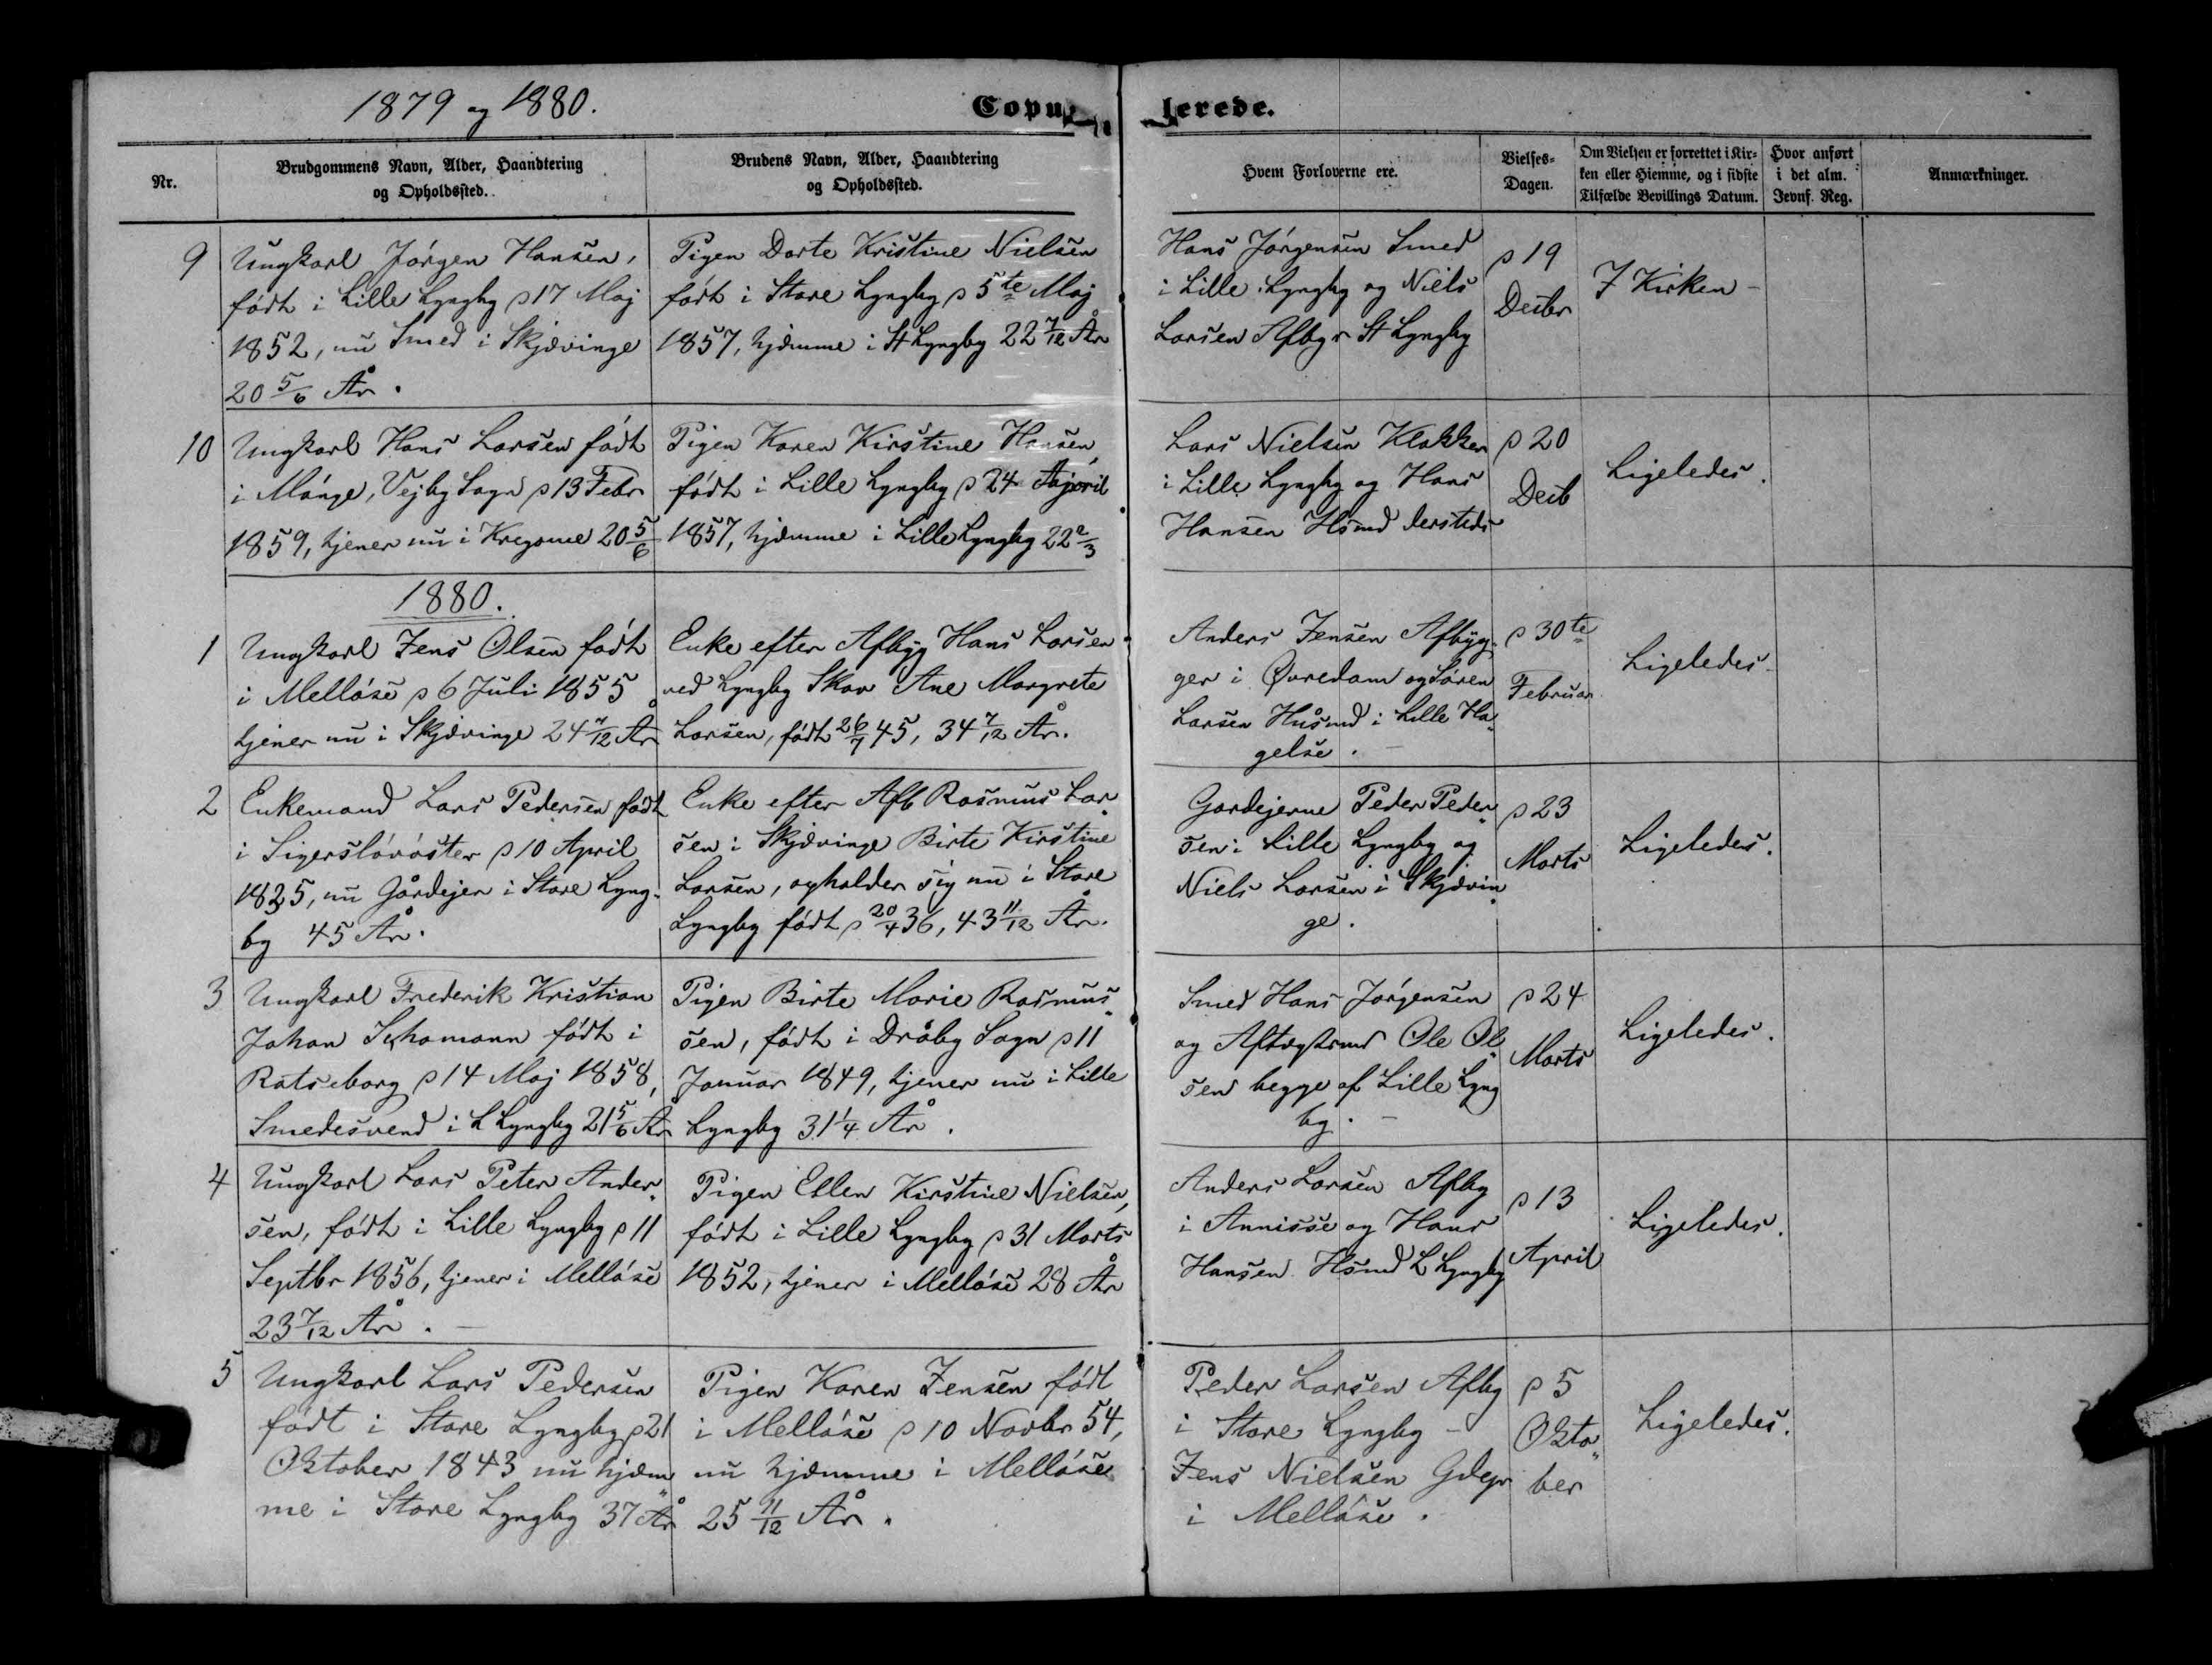 1879 og 1880.
Copulerede.
Nr.
Brudgommens Navn, Alder, Haandtering
og Opholdssted.
Brudens Navn, Alder, Haandtering
og Opholdssted.
Hvem Forloverne ere.
Vielses-
Dagen.
Om Vielsen er forrettet i Kir-
ken eller Hiemme, og i sidste
Tilfælde Bevillings Datum.
Hvor anført
i det alm.
Jevnf. Reg.
Anmærkninger.
9
Ungkarl Jörgen Hansen,
födt i Lille Lyngby d 17 Maj
1852, nu Smed i Skjævinge
20 5/6 År.
Pigen Dorte Kristine Nielsen
födt i Store Lyngby d 5te Maj
1857, hjemme i St Lyngby 22 7/12 År
Hans Jörgensen Smed
i Lille Lyngby og Niels
Larsen Afbgr St Lyngby
d 19
Decbr
I Kirken -
10
Ungkarl Hans Larsen födt
i Mönge, Vejby Sogn d 13 Febr
1859, tjener nu i Kregome 20 5/6
Pigen Karen Kirstine Hansen,
födt i Lille Lyngby d 24 April
1857, hjemme i Lille Lyngby 22 2/3
Lars Nielsen Klokker
i Lille Lyngby og Hans
Hansen Hsmd dersteds
d 20
Decb
Ligeledes.
1880.
1
Ungkarl Jens Olsen födt
i Mellöse d 6 Juli 1855
tjener nu i Skjævinge 24 7/12 År
Enke efter Afbyg Hans Larsen
ved Lyngby Skov Ane Margrete
Larsen, födt 26/7 45, 34 7/12 År.
Anders Jensen Afbyg-
ger i Øvredam og Sören
Larsen Husmd i Lille Ha-
gelse. -
d 30te
Februar
Ligeledes
2
Enkemand Lars Pedersen födt
i Sigerslövöster d 10 April
1835, nu Gårdejer i Store Lyng-
by 45 År.
Enke efter Afb Rasmus Lar-
sen i Skjævinge Birte Kirstine
Larsen, opholder sig nu i Store
Lyngby födt d 20/4 36, 43 11/12 År.
Gardejerne Peder Peder-
sen i Lille Lyngby og
Niels Larsen i Skjævin-
ge.
d 23
Marts
Ligeledes.
3
Ungkarl Frederik Kristian
Johan Schomann födt i
Ratseborg d 14 Maj 1858,
Smedesvend i L Lyngby 21 5/6 År
Pigen Birte Marie Rasmus-
sen, födt i Dråby Sogn d 11
Januar 1849, tjener nu i Lille
Lyngby 31 1/4 År.
Smed Hans Jörgensen
og Aftægtsmd Ole Ol-
sen begge af Lille Lyng
by. -
d 24
Marts
Ligeledes.
4
Ungkarl Lars Peter Ander-
sen, födt i Lille Lyngby d 11
Septbr 1856, tjener i Mellöse
23 7/12 År. -
Pigen Ellen Kirstine Nielsen,
födt i Lille Lyngby d 31 Marts
1852, tjener i Mellöse 28 År
Anders Larsen Afbg
i Annisse og Hans
Hansen Hsmd L Lyngby
d 13
April
Ligeledes.
5
Ungkarl Lars Pedersen
födt i Store Lyngby d 21
Oktober 1843 nu hjem-
me i Store Lyngby 37 År
Pigen Karen Jensen födt
i Mellöse d 10 Novbr 54,
nu hjemme i Mellöse
25 11/12 År.
Peder Larsen Afbg
i Store Lyngby -
Jens Nielsen Gdejr
i Mellöse.
d 5
Okto-
ber
Ligeledes.